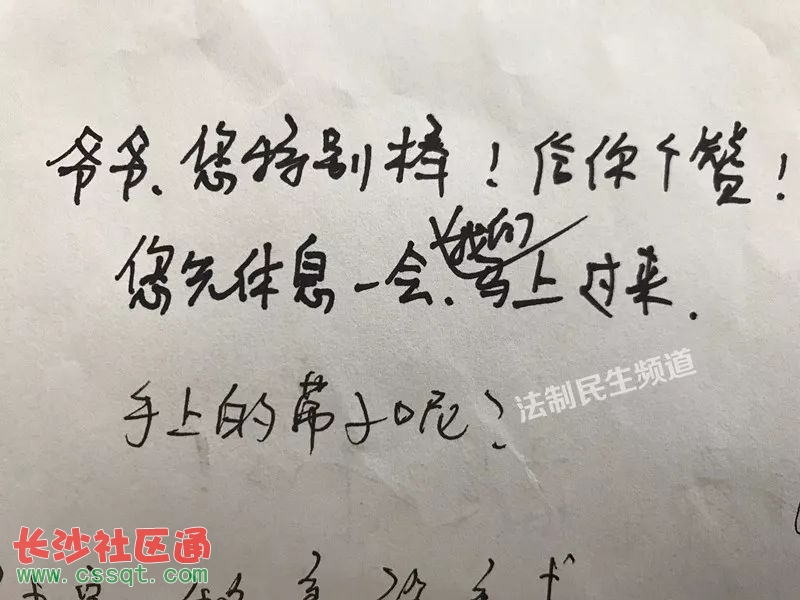 爷爷、您特别棒！给你个赞！
您先休息一会、我们马上过来.
手上的带子呢？
法制民生频道
长沙社区通
www.cssqt.com